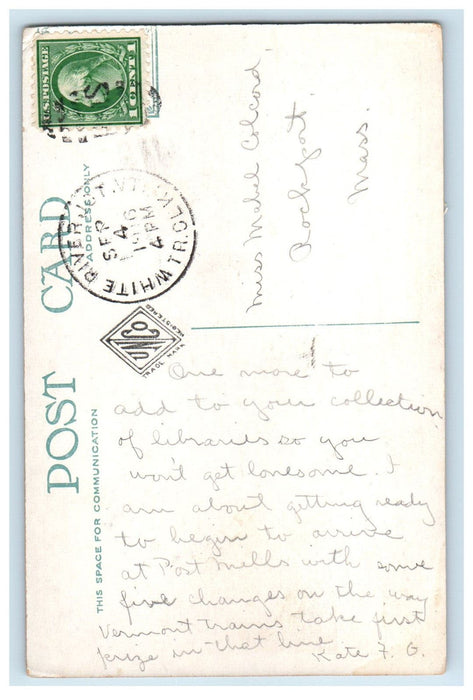 U.S. POSTAGE
1 CENT 1
WHITE RIVER
SEP
4
4 PM
POST CARD
ADDRESS ONLY
THIS SPACE FOR COMMUNICATION
UNCO
TRADE MARK REGISTERED
Miss Mabel Colcord
Rockport
Mass.
One more to
add to your collection
of libraries so you
won't get lonesome. I
am about getting ready
to begin to arrive
at Post Mills with some
five changes on the way
Vermont trains take first
prize in that line
Kate F. G.